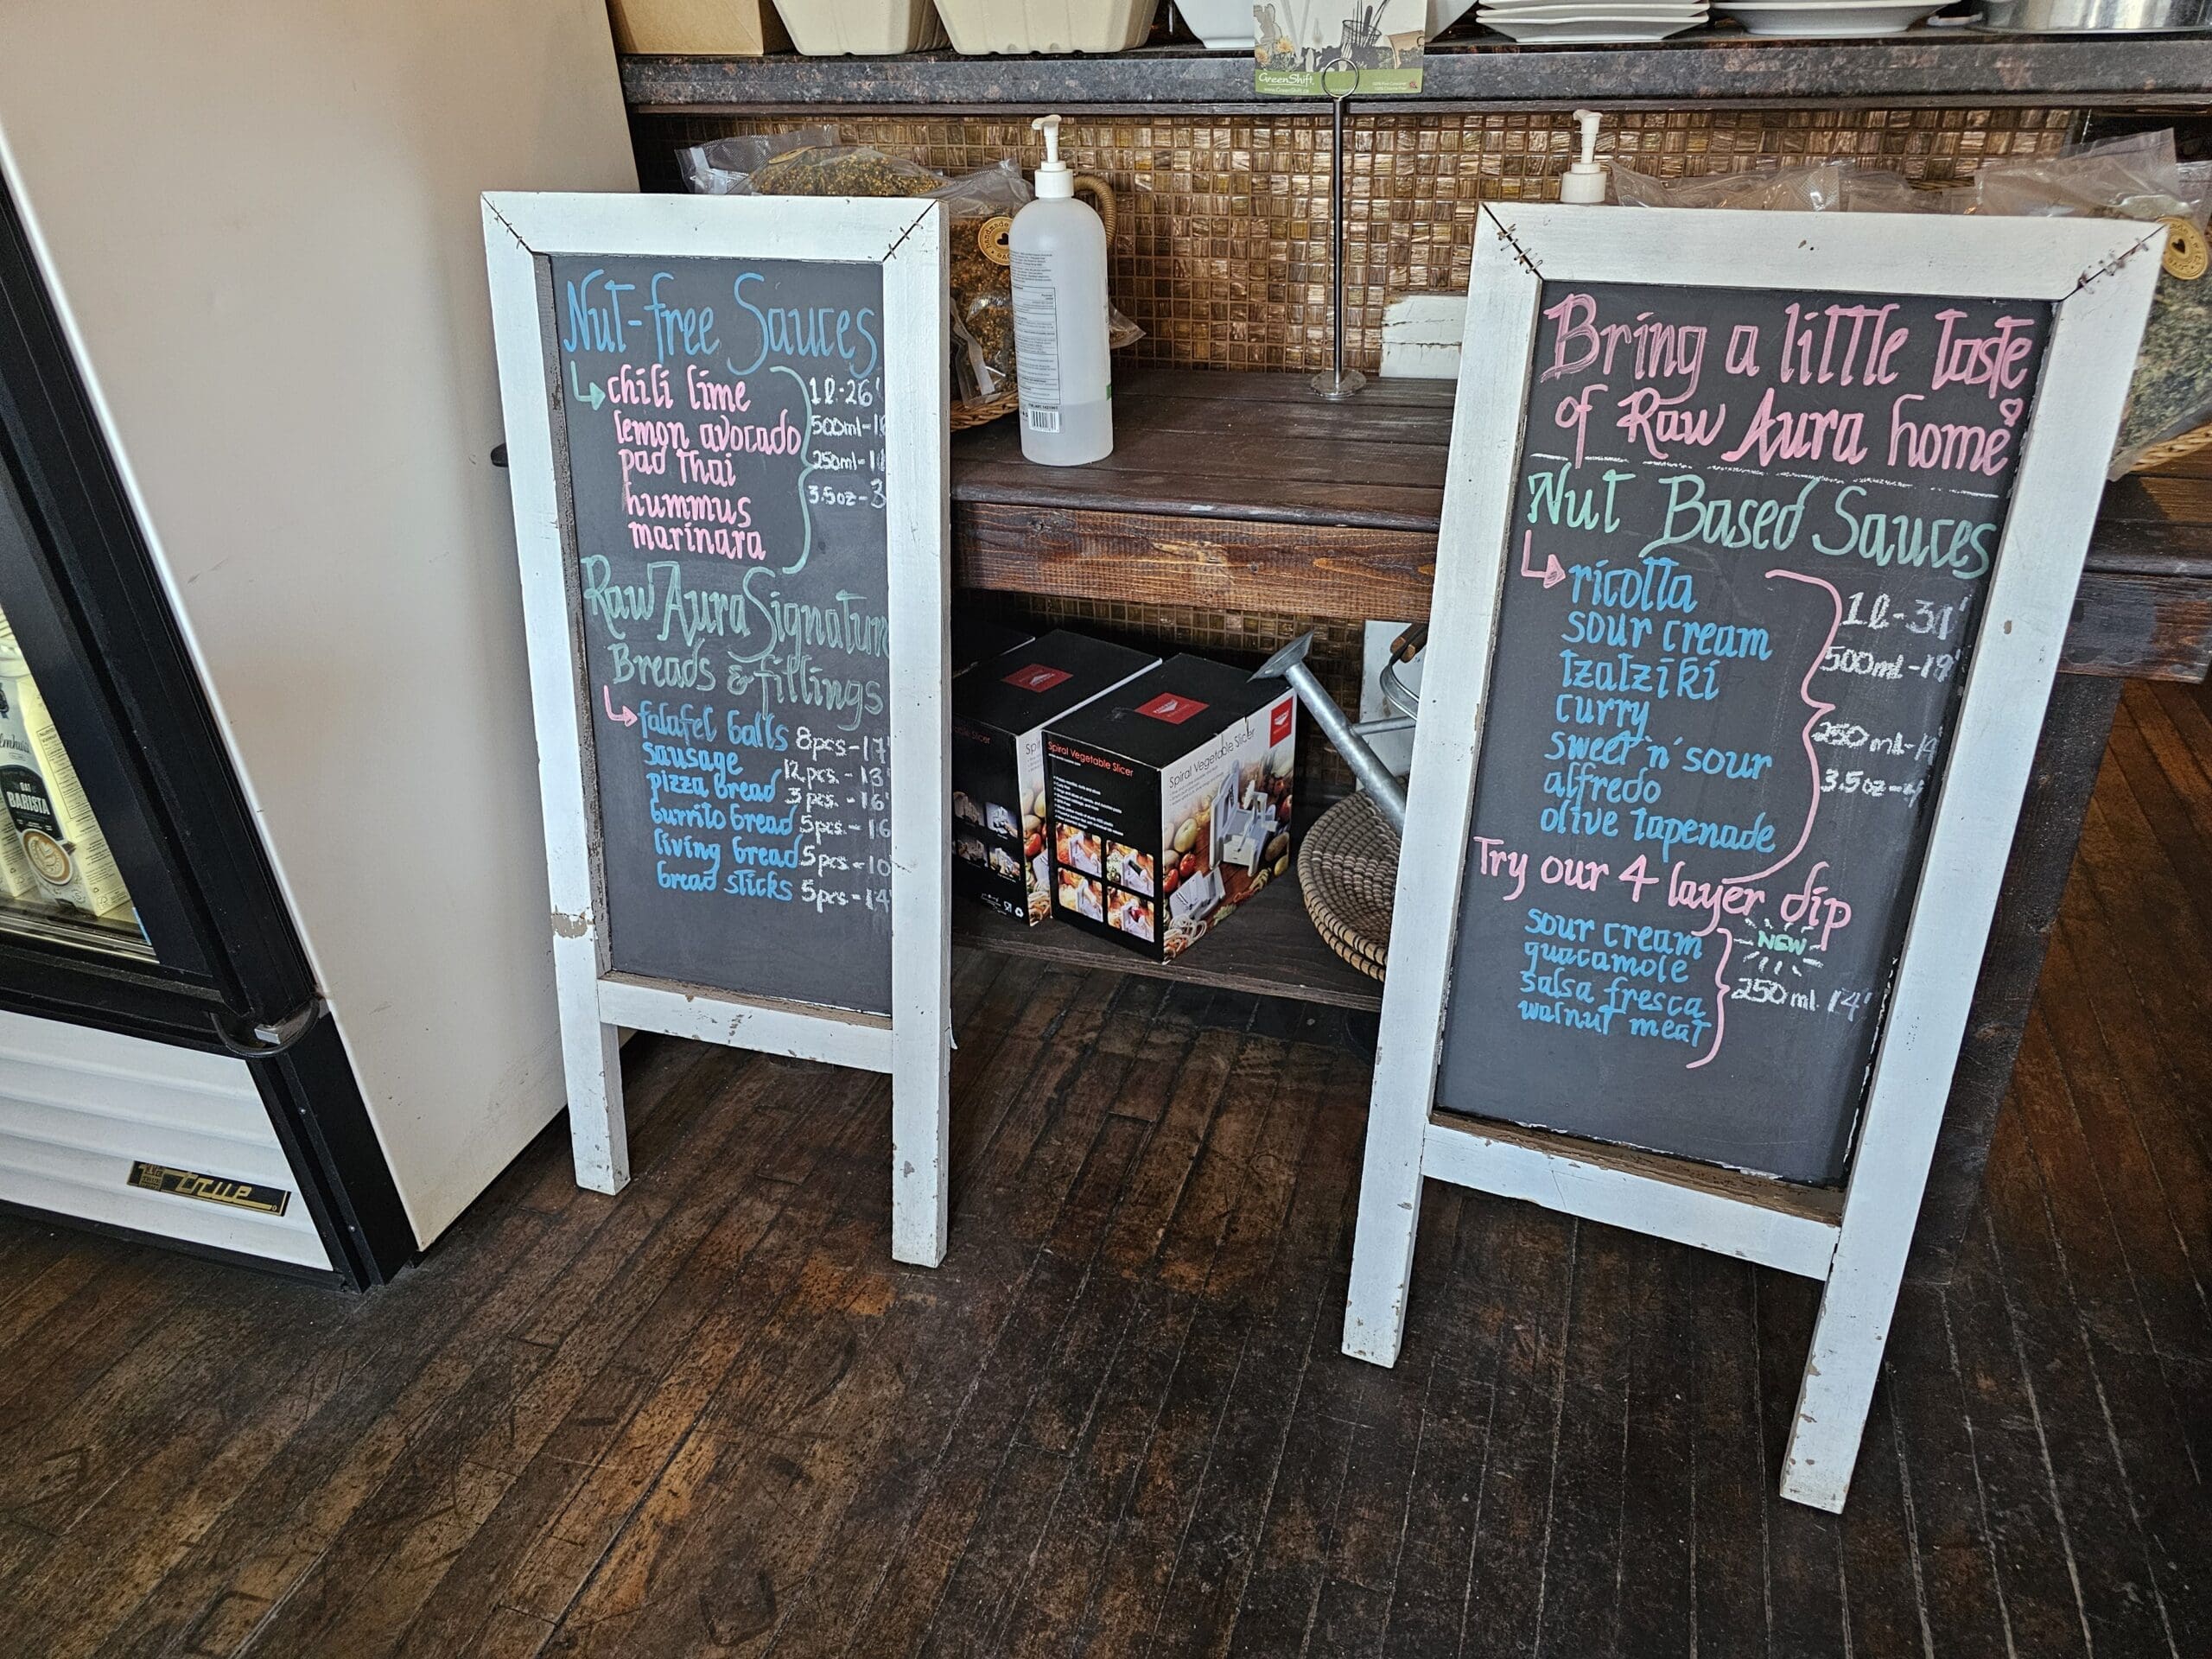 GreenShift
Nut-free Sauces
chili lime
lemon avocado
pad thai
hummus
marinara
1l-26
500ml-
250ml-
3.5oz-3
Raw Aura Signature
Breads & fillings
falafel balls 8pcs-17
sausage 12pcs.-13
pizza bread 3pcs.-16
burrito bread 5pcs-16
living bread 5pcs-10
bread sticks 5pcs-14
Bring a little taste
of Raw Aura home
Nut Based Sauces
ricotta
sour cream
tzatziki
curry
sweet 'n' sour
alfredo
olive tapenade
1l-
500ml-19
250ml-
3.5oz-
Try our 4 layer dip
NEW
sour cream
guacamole
salsa fresca
walnut meat
250ml 14
Spiral Vegetable Slicer
Spiral Vegetable Slicer
OAT
BARISTA
true